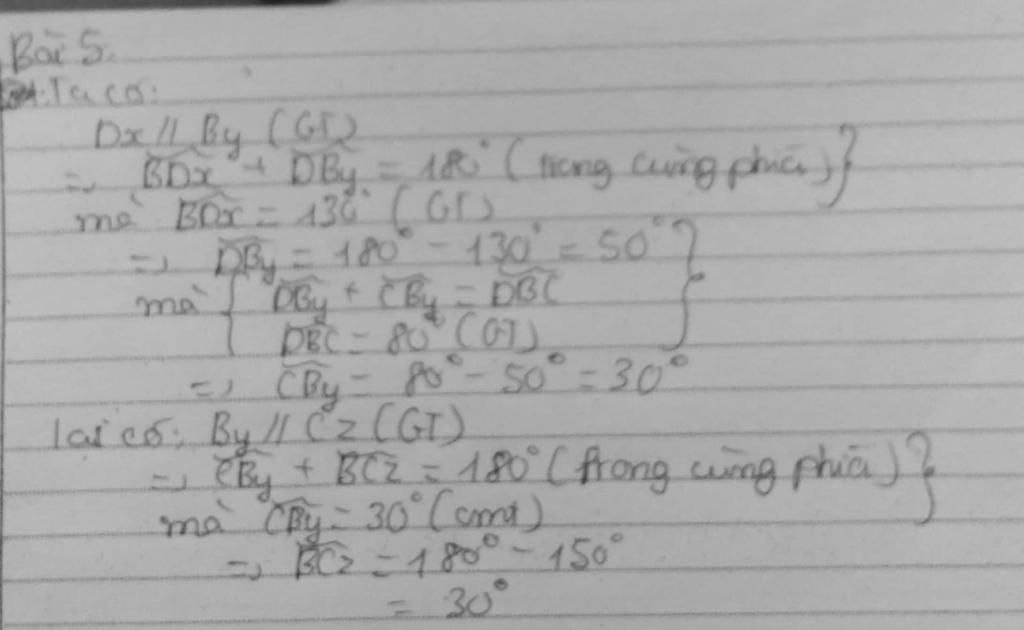 Bài 5.
Ta có:
Dx // By (GT)
=> BDx + DBy = 180° (trong cùng phía) }
mà BDx = 130° (GT)
=> DBy = 180° - 130° = 50° }
mà { DBy + CBy = DBC
DBC = 80° (GT)
=> CBy = 80° - 50° = 30°
lại có: By // Cz (GT)
=> CBy + BCz = 180° (trong cùng phía) }
mà CBy = 30° (cmt)
=> BCz = 180° - 150°
= 30°